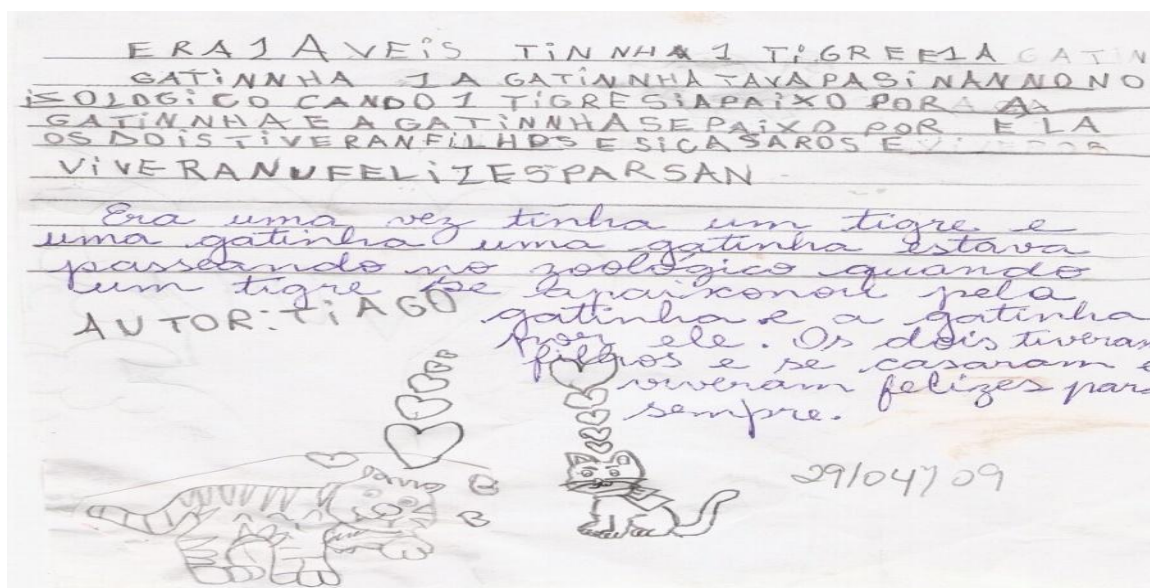 ERA 1 A VEIS TINNHA 1 TIGRE E 1 A GATIN
GATINNHA 1 A GATINNHA TAVAPASINANNO NO
ISOLOGICO CANDO 1 TIGRE SIAPAIXO POR A
GATINNHA E A GATINNHA SEPAIXO POR ELA
OS DOIS TIVERAN FILHOS E SI CASAROS E
VIVERANUFELIZESPARSAN
Era uma vez tinha um tigre e
uma gatinha uma gatinha estava
passeando no zoológico quando
um tigre se apaixonou pela
AUTOR: TIAGO
gatinha e a gatinha
por ele. Os dois tiveram
filhos e se casaram e
viveram felizes para
sempre.
29/04/09